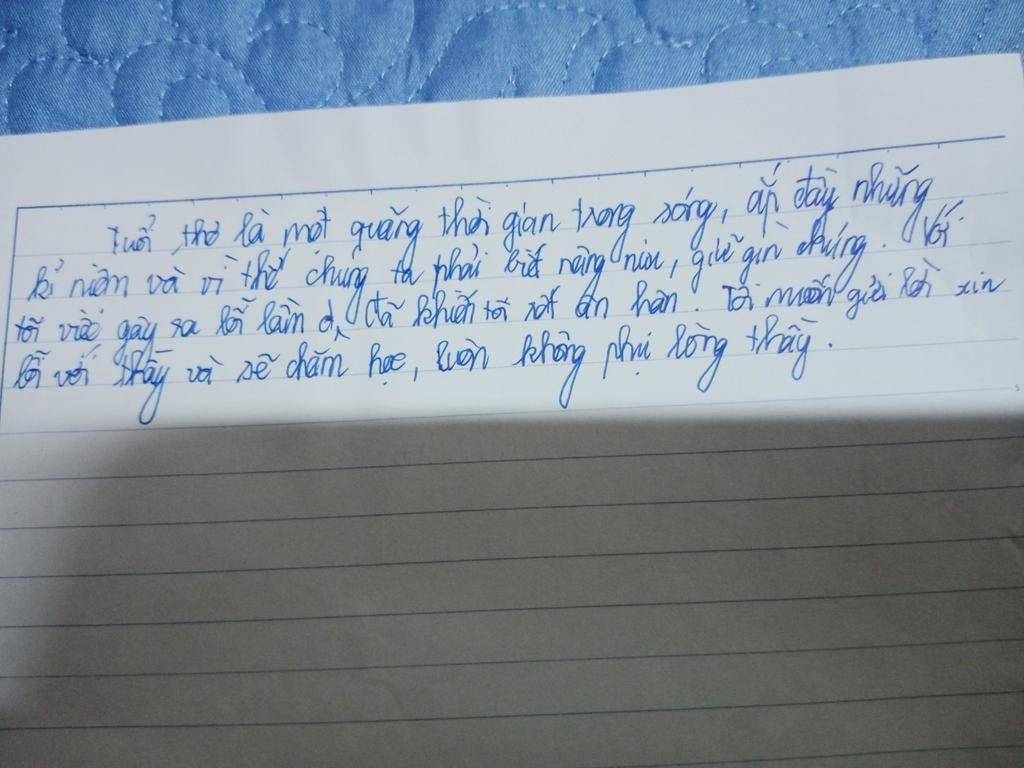 Tuổi thơ là một quãng thời gian trong sáng, ắp đầy những
kỉ niệm và vì thế chúng ta phải biết nâng niu, giữ gìn chúng. Với
tôi việc gây ra lỗi lầm đã khiến tôi rất ân hận. Tôi muốn gửi lời xin
lỗi với thầy và sẽ chăm học, luôn không phụ lòng thầy.